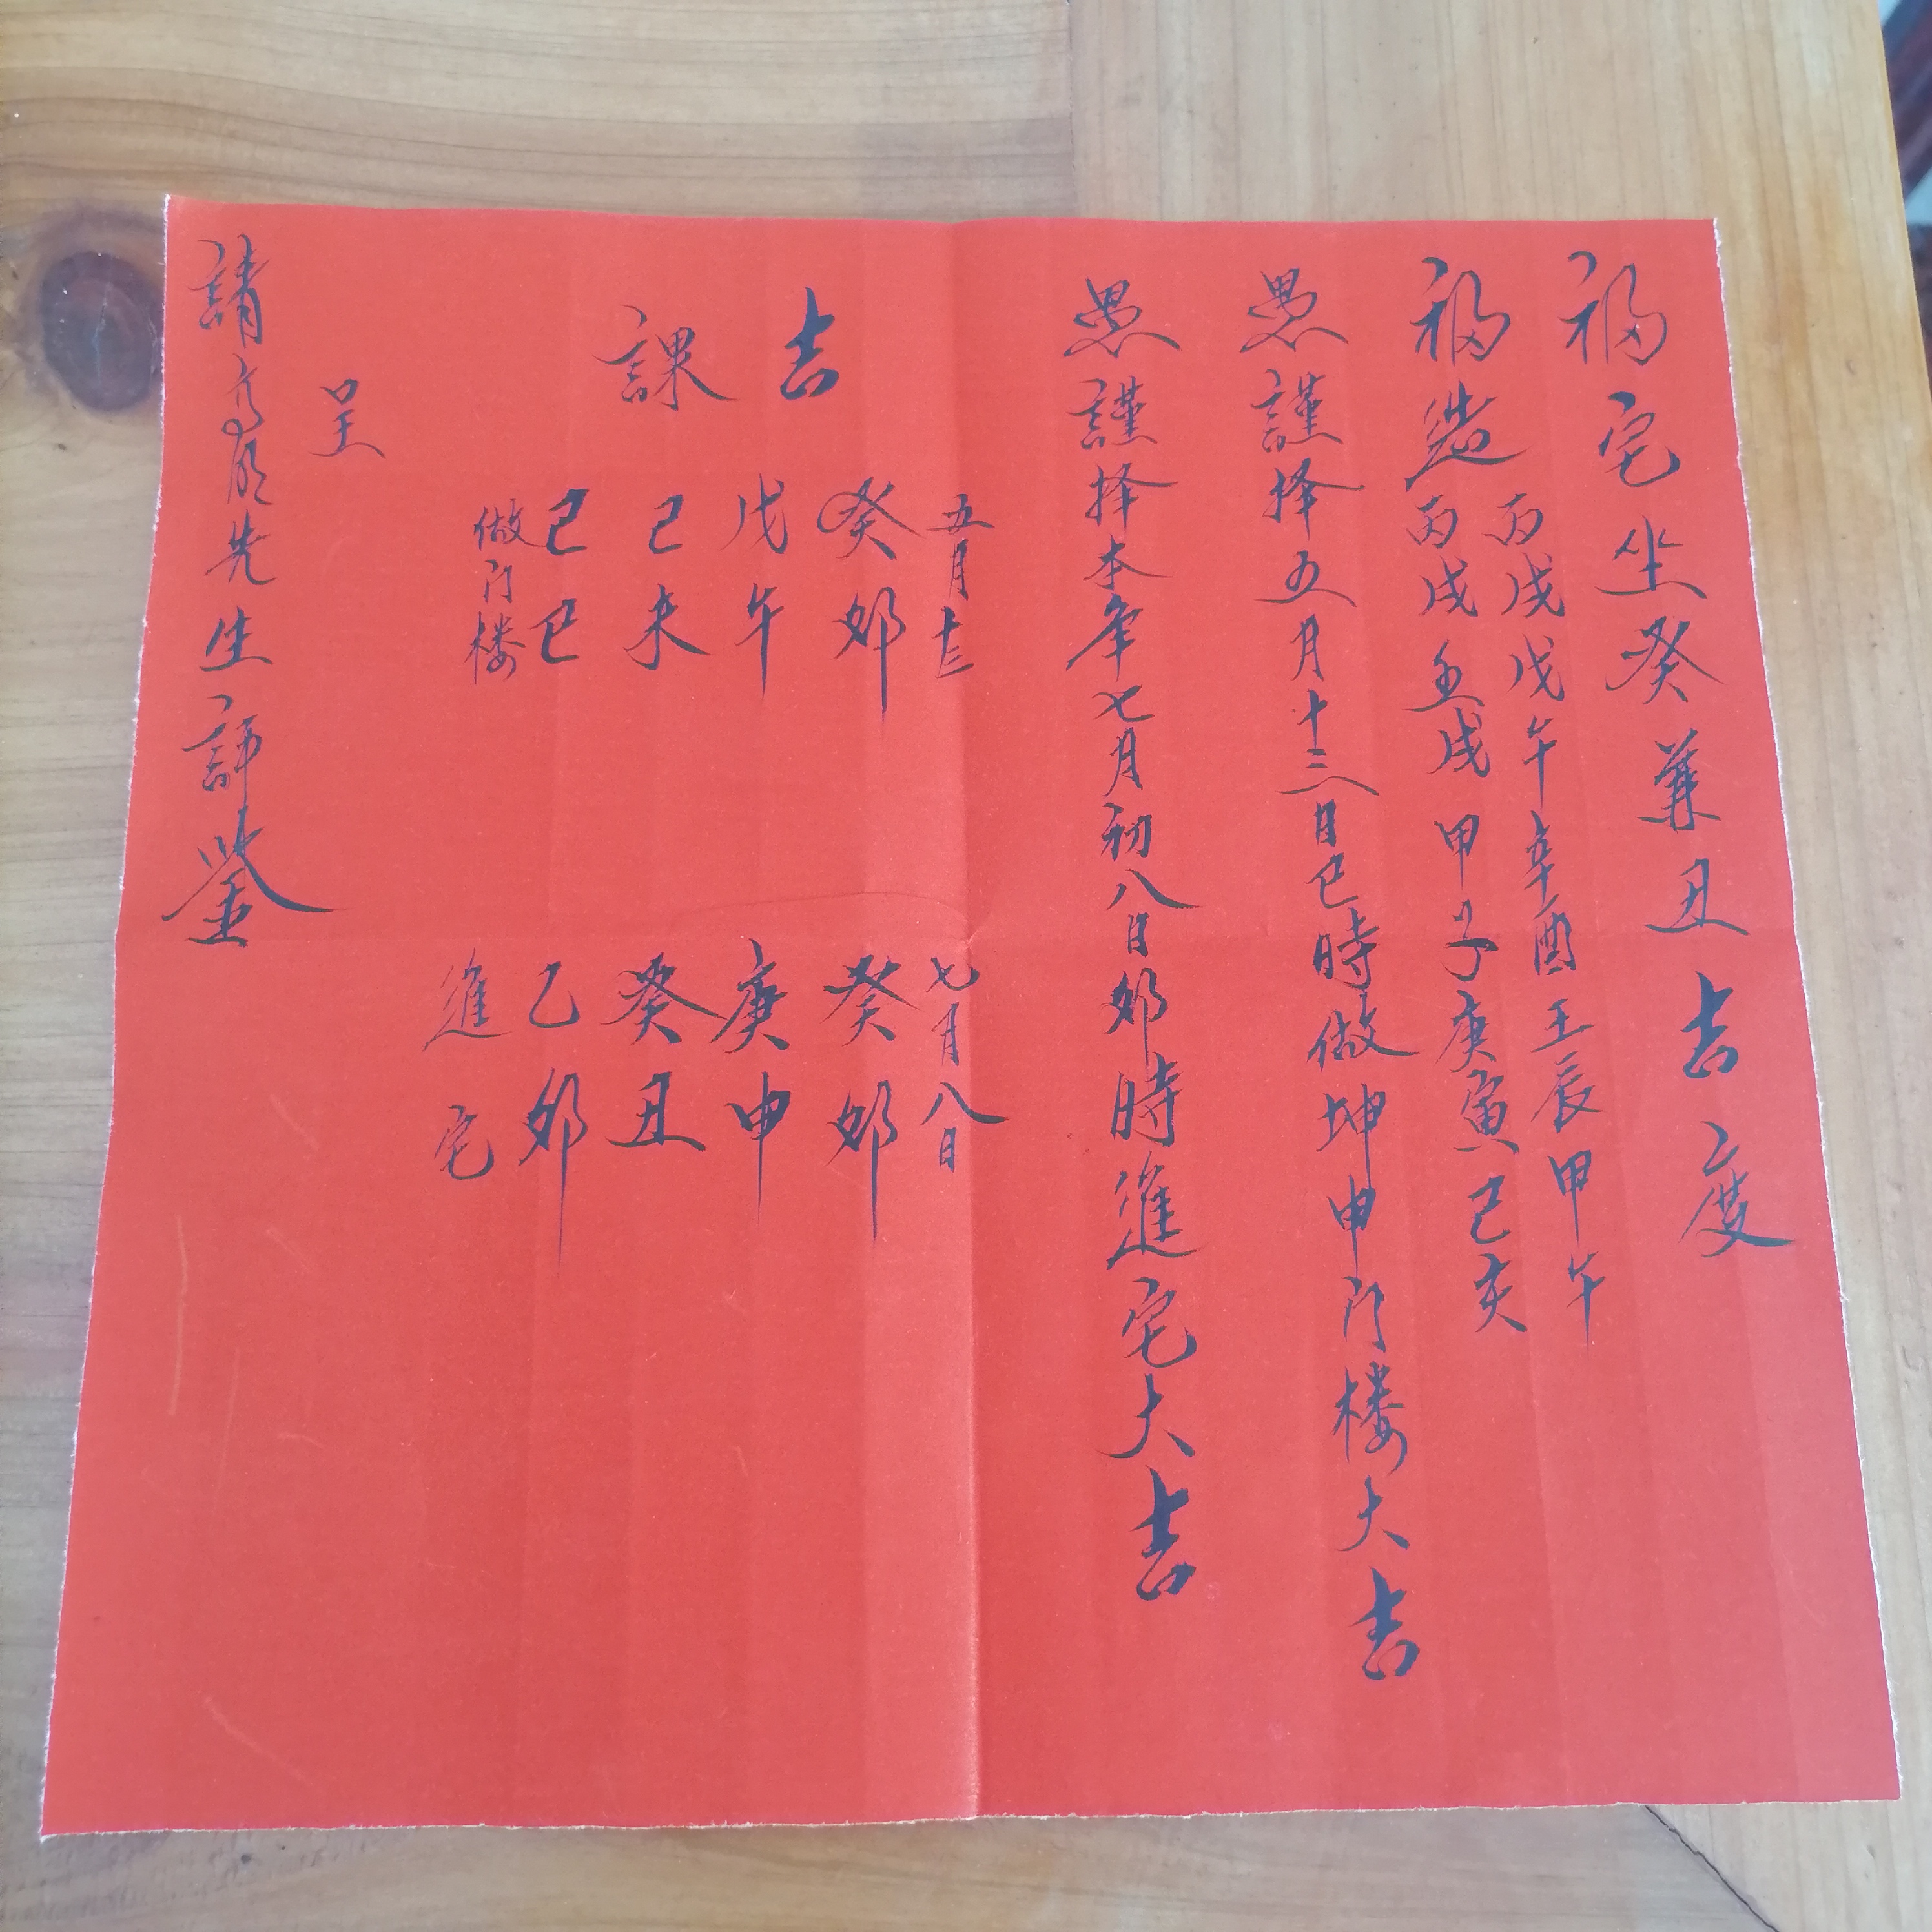 福宅坐癸兼丑吉度
福造
丙戌戊午辛酉壬辰甲午
丙戌壬戌甲子庚寅己亥
愚謹择五月十三日巳時做坤申门楼大吉
愚謹择本年七月初八日卯時進宅大吉
吉課
五月十三
癸卯
戊午
己未
己巳
做门楼
七月八日
癸卯
庚申
癸丑
乙卯
進宅
呈
請高明先生評鉴